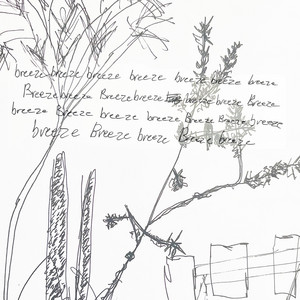 breeze breeze breeze breeze breeze breeze breeze
Breeze breeze Breeze breeze breeze breeze Breeze
breeze Breeze breeze breeze Breeze Breeze breeze
breeze Breeze breeze Breeze breeze